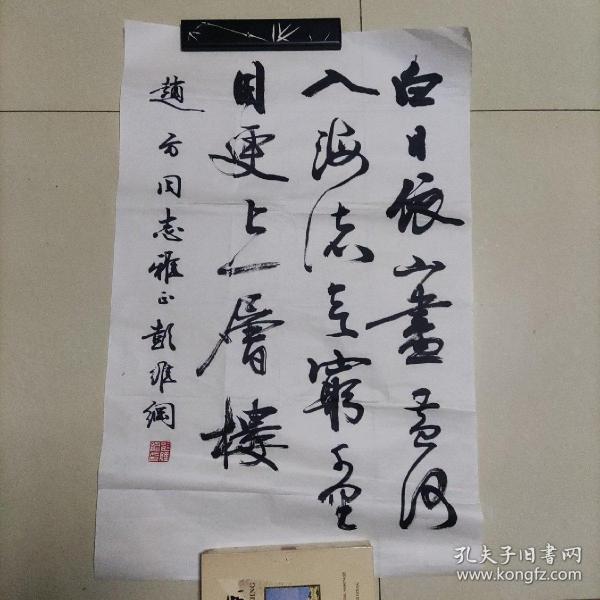 白日依山盡黄河
入海流欲窮千里
目更上一層樓
趙方同志雅正彭維綱
NING
孔夫子旧书网
www.kongfz.com